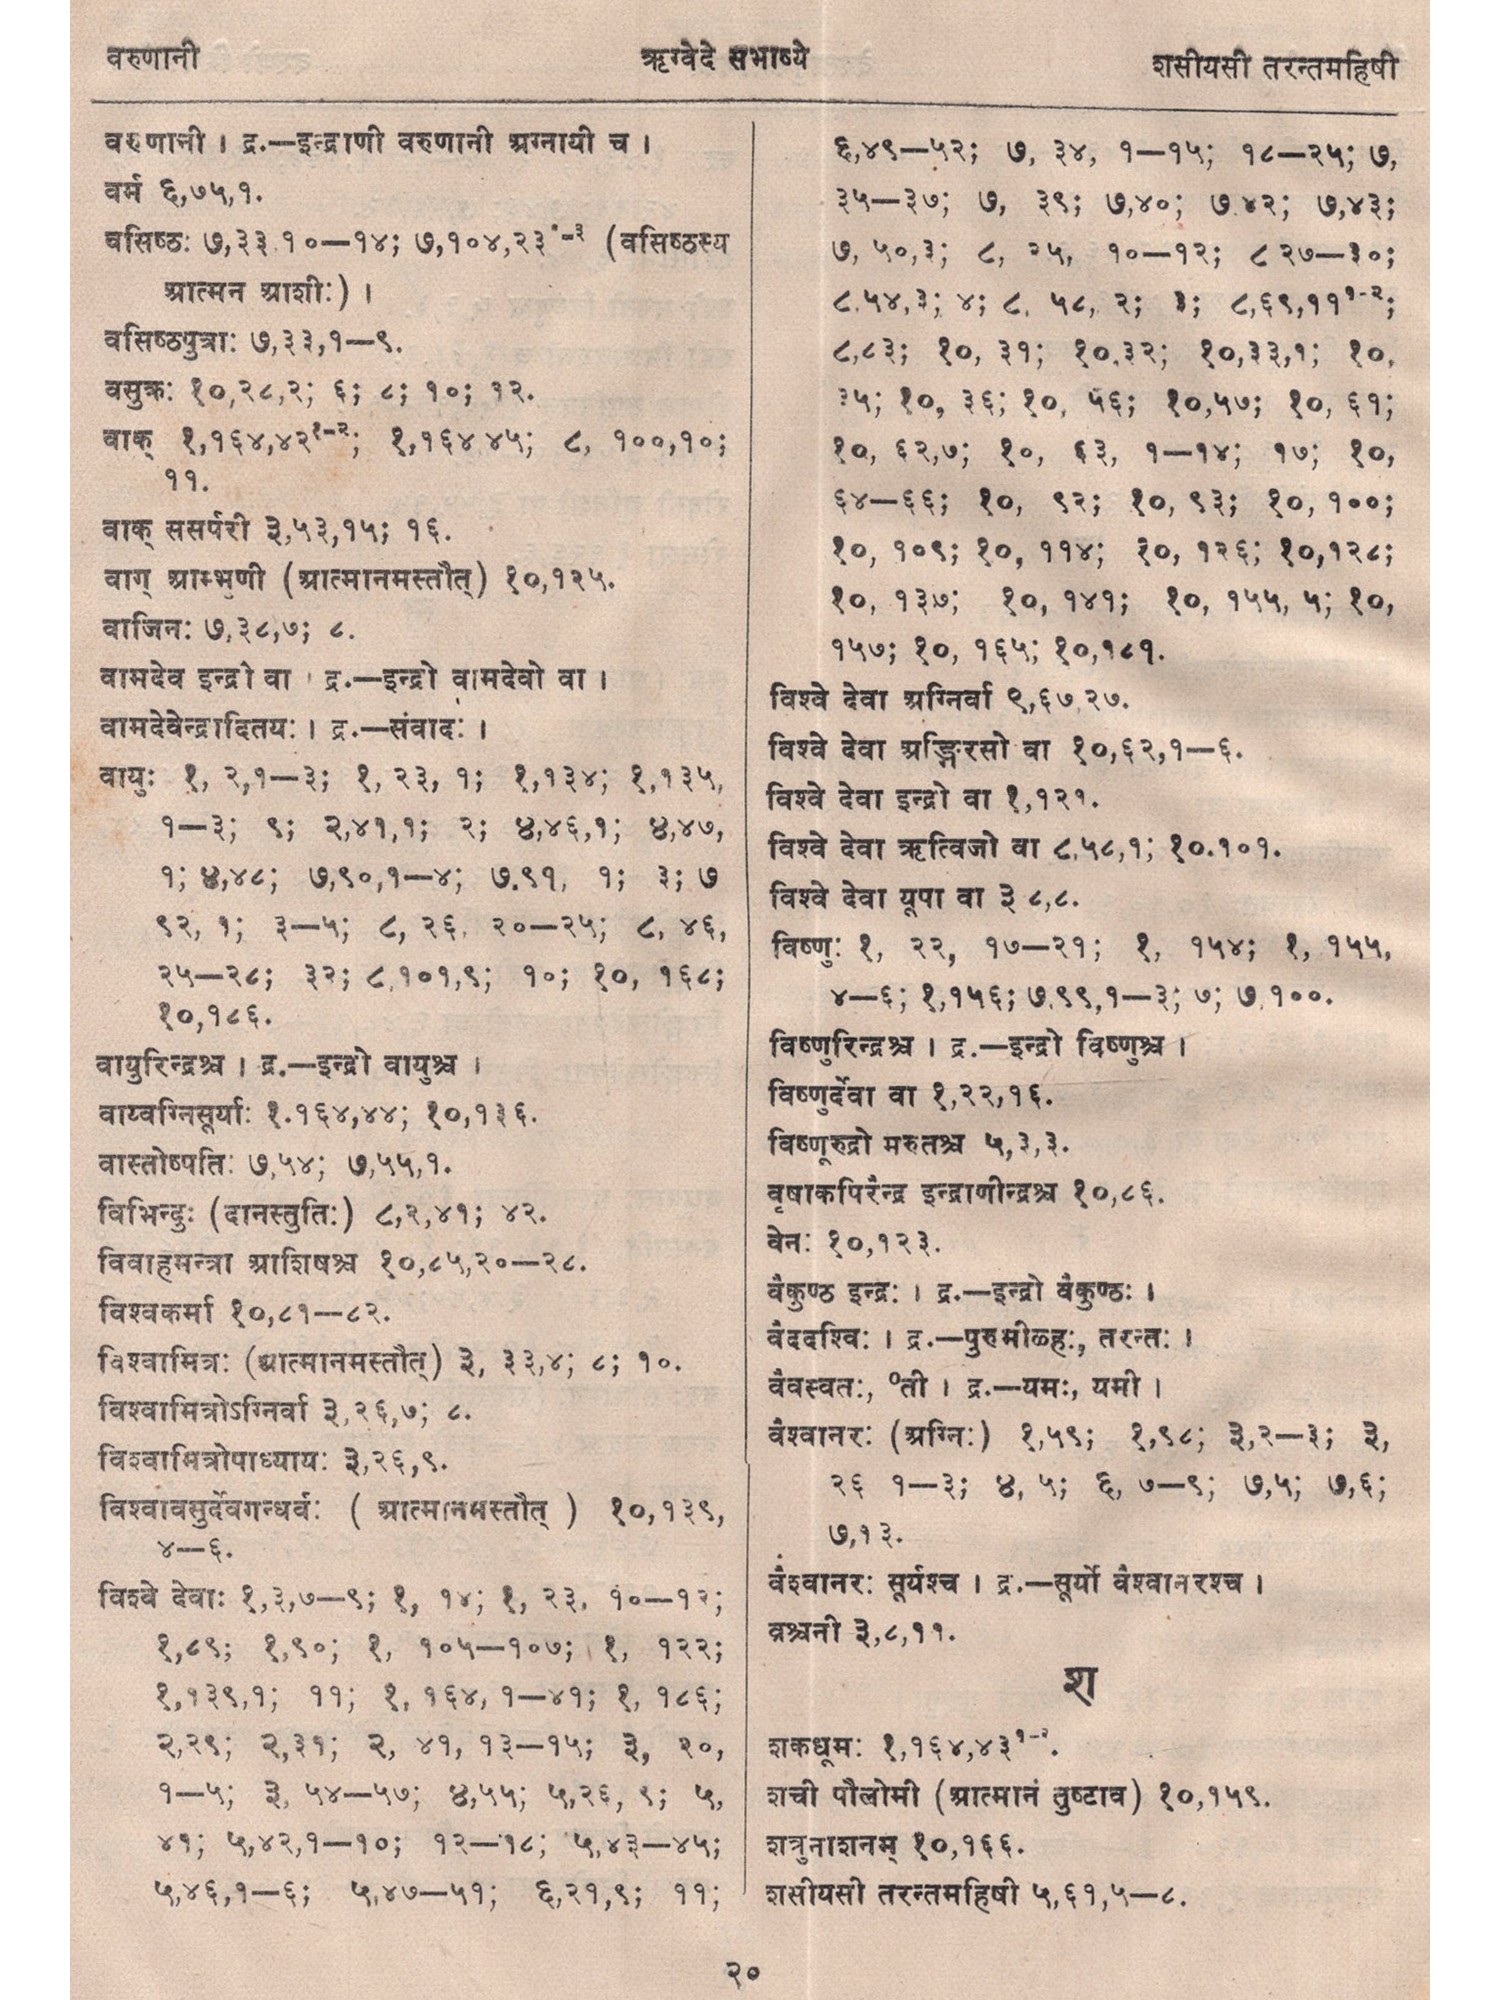 वरुणानी ऋग्वेदे सभाष्ये शसीयसी तरन्तमहिषी
वरुणानी । द्र.—इन्द्राणी वरुणानी अग्नायी च ।
वर्म ६,७५,१.
वसिष्ठः ७,३३.१०—१४; ७,१०४,२३¹⁻³ (वसिष्ठस्य
आत्मन आशीः) ।
वसिष्ठपुत्राः ७,३३,१—९.
वसुक्रः १०,२८,२; ६; ८; १०; १२.
वाक् १,१६४,४२¹⁻²; १,१६४ ४५; ८, १००,१०;
११.
वाक् ससर्परी ३,५३,१५; १६.
वाग् आम्भृणी (आत्मानमस्तौत्) १०,१२५.
वाजिनः ७,३८,७; ८.
वामदेव इन्द्रो वा । द्र.—इन्द्रो वामदेवो वा ।
वामदेवेन्द्रादितयः । द्र.—संवादः ।
वायुः १, २,१—३; १, २३, १; १,१३४; १,१३५,
१—३; ९; २,४१,१; २; ४,४६,१; ४,४७,
१; ४,४८; ७,९०,१—४; ७.९१, १; ३; ७
९२, १; ३—५; ८, २६, २०—२५; ८, ४६,
२५—२८; ३२; ८,१०१,९; १०; १०, १६८;
१०,१८६.
वायुरिन्द्रश्च । द्र.—इन्द्रो वायुश्च ।
वाय्वग्निसूर्याः १.१६४,४४; १०,१३६.
वास्तोष्पतिः ७,५४; ७,५५,१.
विभिन्दुः (दानस्तुतिः) ८,२,४१; ४२.
विवाहमन्त्रा आशिषश्च १०,८५,२०—२८.
विश्वकर्मा १०,८१—८२.
विश्वामित्रः (आत्मानमस्तौत्) ३, ३३,४; ८; १०.
विश्वामित्रोऽग्निर्वा ३,२६,७; ८.
विश्वामित्रोपाध्यायः ३,२६,९.
विश्वावसुर्देवगन्धर्वः ( आत्मानमस्तौत् ) १०,१३९,
४—६.
विश्वे देवाः १,३,७—९; १, १४; १, २३, १०—१२;
१,८९; १,९०; १, १०५—१०७; १, १२२;
१,१३९,१; ११; १, १६४, १—४१; १, १८६;
२,२९; २,३१; २, ४१, १३—१५; ३, २०,
१—५; ३, ५४—५७; ४,५५; ५,२६, ९; ५,
४१; ५,४२,१—१०; १२—१८; ५,४३—४५;
५,४६,१—६; ५,४७—५१; ६,२१,९; ११;
६,४९—५२; ७, ३४, १—१५; १८—२५; ७,
३५—३७; ७, ३९; ७,४०; ७ ४२; ७,४३;
७, ५०,३; ८, २५, १०—१२; ८ २७—३०;
८,५४,३; ४; ८, ५८, २; ३; ८,६९,११¹⁻²;
८,८३; १०, ३१; १०,३२; १०,३३,१; १०,
३५; १०, ३६; १०, ५६; १०,५७; १०, ६१;
१०, ६२,७; १०, ६३, १—१४; १७; १०,
६४—६६; १०, ९२; १०, ९३; १०, १००;
१०, १०९; १०, ११४; १०, १२६; १०,१२८;
१०, १३७; १०, १४१; १०, १५५, ५; १०,
१५७; १०, १६५; १०,१८१.
विश्वे देवा अग्निर्वा ९,६७,२७.
विश्वे देवा अङ्गिरसो वा १०,६२,१—६.
विश्वे देवा इन्द्रो वा १,१२१.
विश्वे देवा ऋत्विजो वा ८,५८,१; १०.१०१.
विश्वे देवा यूपा वा ३ ८,८.
विष्णुः १, २२, १७—२१; १, १५४; १, १५५,
४—६; १,१५६; ७,९९,१—३; ७; ७,१००.
विष्णुरिन्द्रश्च । द्र.—इन्द्रो विष्णुश्च ।
विष्णुर्देवा वा १,२२,१६.
विष्णूरुद्रो मरुतश्च ५,३,३.
वृषाकपिरैन्द्र इन्द्राणीन्द्रश्च १०,८६.
वेनः १०,१२३.
वैकुण्ठ इन्द्रः । द्र.—इन्द्रो वैकुण्ठः ।
वैददश्विः । द्र.—पुरुमीळ्हः, तरन्तः ।
वैवस्वतः, °ती । द्र.—यमः, यमी ।
वैश्वानरः (अग्निः) १,५९; १,९८; ३,२—३; ३,
२६ १—३; ४, ५; ६, ७—९; ७,५; ७,६;
७,१३.
वैश्वानरः सूर्यश्च । द्र.—सूर्यो वैश्वानरश्च ।
व्रश्चनी ३,८,११.
श
शकधूमः १,१६४,४३¹⁻².
शची पौलोमी (आत्मानं तुष्टाव) १०,१५९.
शत्रुनाशनम् १०,१६६.
शसीयसी तरन्तमहिषी ५,६१,५—८.
२०